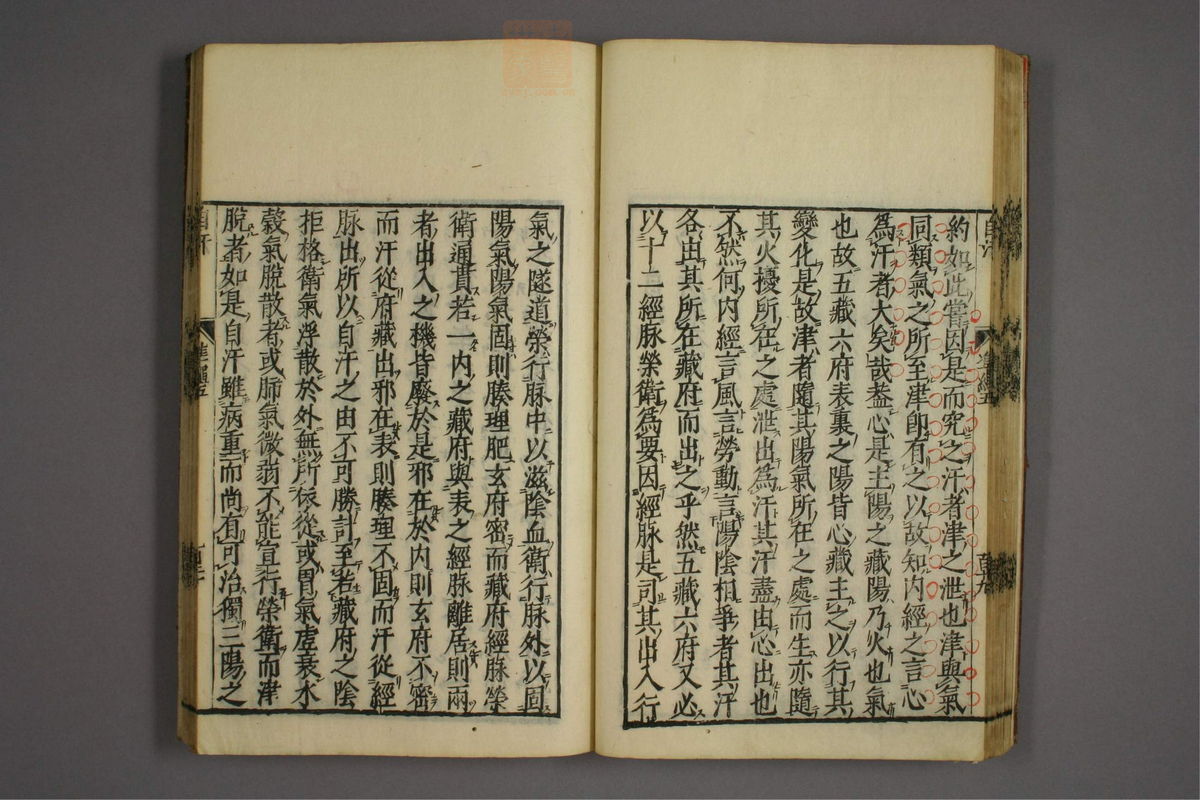 約如此嘗因是而究之汗者津之泄也津與氣
同類氣之所至津卽有之以故知內經之言心
爲汗者大矣哉葢心是主陽之藏陽乃火也氣
也故五藏六府表裏之陽皆心藏主之以行其
變化是故津者隨其陽氣所在之處而生亦隨
其火擾所在之處泄出爲汗其汗盡由心出也
不然何內經言風言勞動言陽陰相爭者其汗
各由其所在藏府而出之乎然五藏六府又必
以十二經脉榮衛爲要因經脉是司其出入行
氣之隧道榮行脉中以滋陰血衛行脉外以固
陽氣陽氣固則腠理肥玄府密而藏府經脉榮
衛通貫若一內之藏府與表之經脉離居則兩
者出入之機皆廢於是邪在於內則玄府不密
而汗從府藏出邪在表則腠理不固而汗從經
脉出所以自汗之由不可勝計至若藏府之陰
拒格衛氣浮散於外無所依從或胃氣虛衰水
穀氣脫散者或肺氣微弱不能宣行榮衛而津
脫者如是自汗雖病重而尚有可治獨三陽之
自汗
自汗